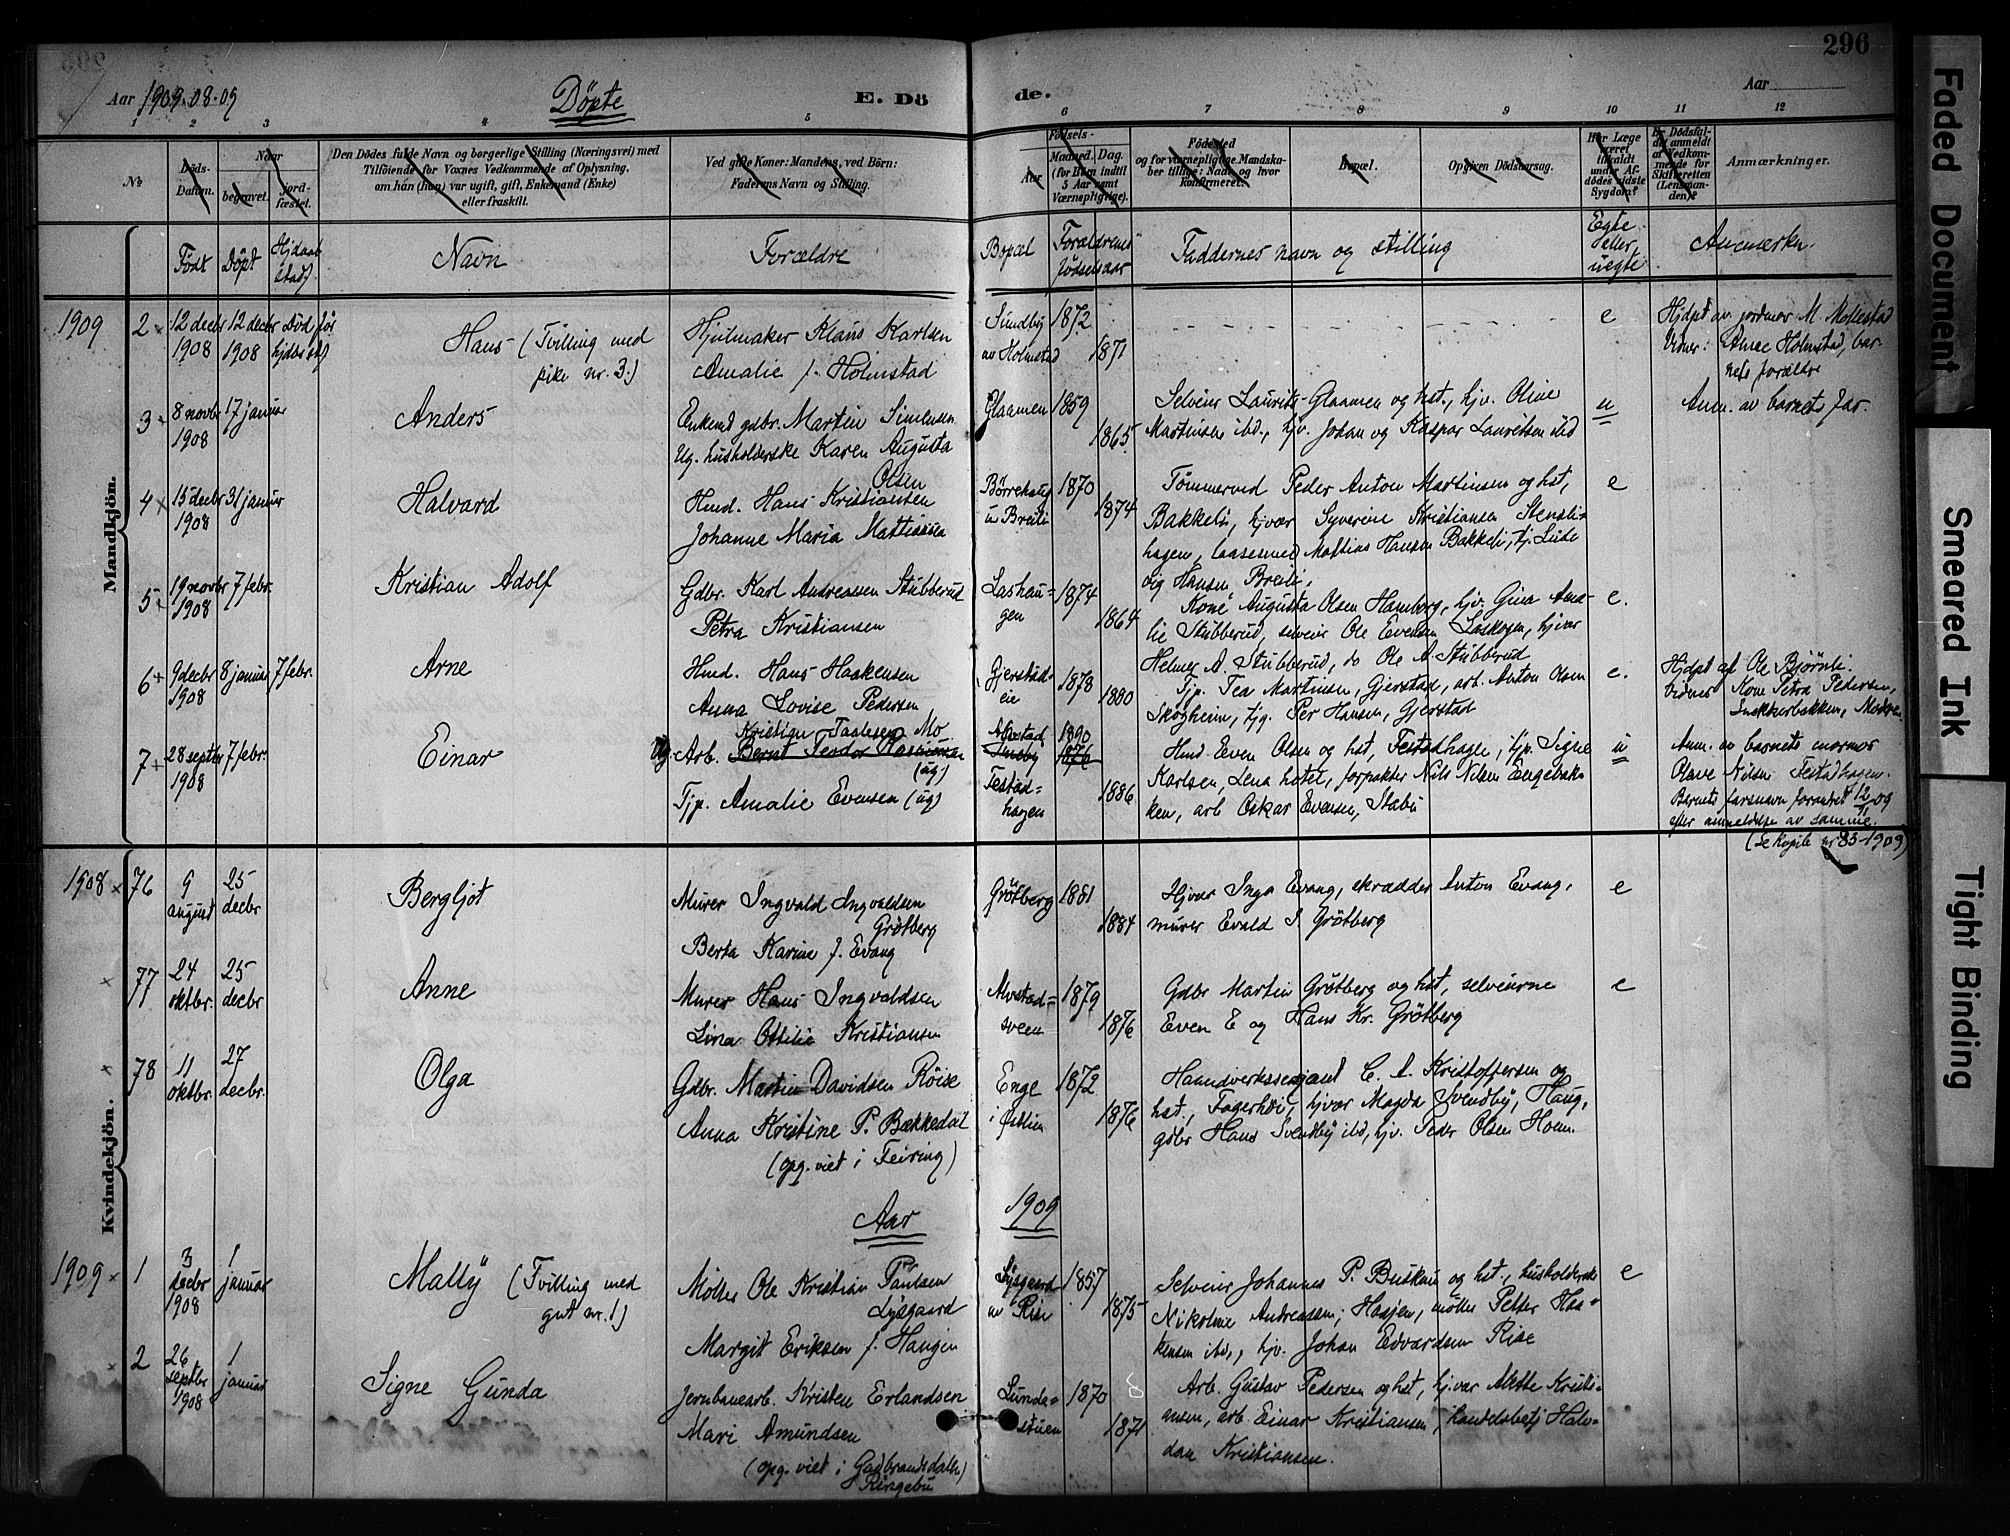 296
Aar 1909.08.09
Döpte
E. Dö de.
Aar
1 2 3 4 5 6 7 8 9 10 11 12
№
Döds-Datum.
Naar
begravet.
jord-fæstet.
Den Dödes fulde Navn og borgerlige Stilling (Næringsvei) med
Tilföiende for Voxnes Vedkommende af Oplysning,
om han (hun) var ugift, gift, Enkemand (Enke)
eller fraskilt.
Ved gifte Koner: Mandens, ved Börn:
Faderens Navn og Stilling.
Födsels-
Aar
Maaned. Dag.
(for Börn indtil
5 Aar samt
Værnepligtige).
Födested
og for værnepligtige Mandska-
ber tillige: Naar og hvor
konfirmeret.
Bopæl.
Opgiven Dödsaarsag.
Har Læge
været
tilkaldt
under Af-
dödes sidste
Sygdom?
Er Dödsfal-
det anmeldt
af Vedkom-
mende for
Skifteretten
(Lensman-
den)?
Anmærkninger.
Født Döpt Hjdaab stadf
Navn
Forældre
Bopæl
Forældrenes fødselsaar
Faddernes navn og stilling
Egte eller uegte
Anmærkn.
Mandkjön.
1909 2 12 decbr 1908 12 decbr 1908 Död för hjdbs stf
Hans (Tvilling med
pike nr. 3.)
Hjulmaker Klaus Karlsen
Amalie f. Holmstad
Sundby
av Holmstad
1872
1871
e
Hjdpt av jordmor M. Mollestad
Vidner: Holmstad, bar-
nets forældre
3 8 novbr 1908 17 januar
Anders
Enkemd gdbr. Martin Simensen
Ug. husholderske Karen Augusta
Olsen
Glaamen
1859
1865
Selveier Laurits Glaamen og hst., hjv. Oline
Martinsen ibd., hjv. Johan og Kaspar Lauritsen ibd
u
Anm. av barnets far.
4 15 decbr 1908 31 januar
Halvard
Hmd. Hans Kristiansen
Johanne Maria Mattisen
Börrehaug
u Breili
1870
1874
Tömmermd Peder Anton Martinsen og hst,
Bakkeli, hjvær Syverine Kristiansen Stensli-
hagen, laasesmed Mattias Hansen Bakkeli, tj. Lud-
vig Hansen Breili.
e
5 19 novbr 1908 7 febr.
Kristian Adolf
Gdbr. Karl Andreassen Stubberud
Petra Kristiansen
Lashau-
gen
1874
1864
Kone Augusta Olsen Hamborg, hjv. Gina Ama-
lie Stubberud, selveier Ole Evensen Laskogen, hjvær
Helmer A. Stubberud, do Ole A. Stubberud
e.
6 9 decbr 1908 8 januar 7 febr.
Arne
Hmd. Hans Haakensen
Anna Lovise Pedersen
Gjerstad-
eie
1878
1880
Tjp. Tea Martinsen, Gjerstad, arb. Anton Olsen
Skogheim, tjg. Per Hansen, Gjerstad
e.
Hjdpt af Ole Björnli.
Vidner Kone Petra Pedersen,
Snekkerbakken, Modren
7 28 septbr 1908 7 febr.
Einar
Kristian Taalesen Mo
Ug. Arb. Bernt Teodor Rasmussen
(ug)
Tjp. Amalie Evensen (ug)
Alvstad
Sundby
Festad-
hagen
1890
1876
1886
Hmd Even Olsen og hst, Festadhagen, tjp. Signe
Karlsen, Lena hotel, forpakter Nils Nilsen Engebak-
ken, arb Oskar Evensen, Stabu
u
Anm. av barnets mormor
Olave Nilsen Festadhagen.
Barnets farsnavn forandret 12/9 09
efter anmeldelse av samme.
(Se kopib nr 83-1909)
Kvindekjön.
1908 76 9 august 25 decbr
Bergljot
Murer Ingvald Ingvaldsen
Grötberg
Berta Karine f. Evang
Grötberg
1881
1884
Hjvær Inga Evang, skrædder Anton Evang,
murer Evald I. Grötberg
e
77 24 oktbr. 25 decbr
Anne
Murer Hans Ingvaldsen
Lina Ottilie Kristiansen
Alvstad-
sveen
1879
1876
Gdbr Martin Grötberg og hst, selveierne
Even E og Hans Kr. Grötberg
e
78 11 oktbr. 27 decbr.
Olga
Gdbr. Martin Davidsen Röise
Anna Kristine P. Bækkedal
(opg. viet i Feiring)
Enge
i Östlien
1872
1876
Haandverkssersjant C. A. Kristoffersen og
hst., Fagerhöi, hjvær Magda Svendby, Haug,
gdbr Hans Svendby ibd, hjv. Peder Olsen Horn.
Aar 1909
1909 1 3 decbr 1908 1 januar
Mally (Tvilling med
gut nr. 1)
Möller Ole Kristian Paulsen
Lysgaard
Margit Eriksen f. Haugen
Lysgaard
av Rise
1857
1875
Selveier Johannes P. Buskeus og hst., husholderske
Nikoline Andreassen, Haajen, möller Petter Haa-
kensen ibd., hjv. Johan Edvardsen Rise
e
2 26 septbr 1908 1 januar
Signe Gunda
Jernbanearb. Kristen Erlandsen
Mari Amundsen
(opg. viet i Gudbrandsdalen)
Ringebu
Lunde-
stuen
1870
1871
Arb. Gustav Pedersen og hst, hjvær Alette Kristi-
ansen, arb. Einar Kristiansen, handelsbetj Halv-
dan Kristiansen.
Faded Document
Smeared Ink
Tight Binding